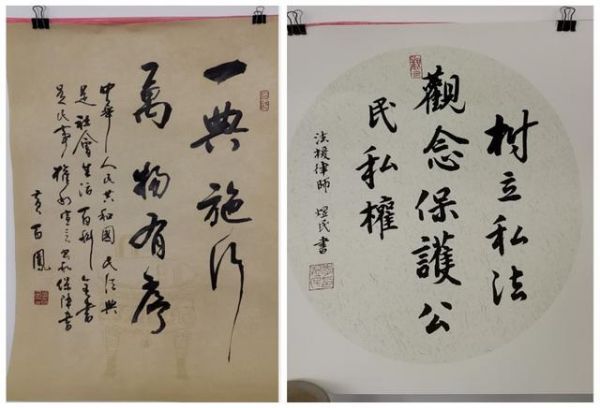 一典施行
萬物有序
中華人民共和國民法典
是社會生活百科全書
是民事權利宣言和保障書
黄百鳳
树立私法
觀念保護公
民私權
法援律師 煜民書